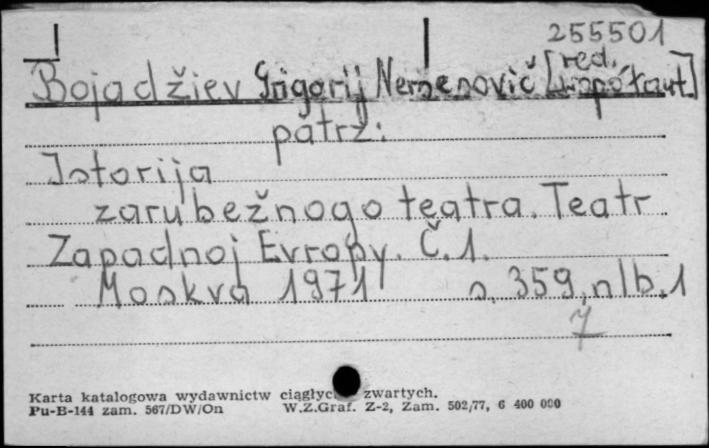 255501
Bojadžiev Grigorij Nersesovič [red. i współaut.]
patrz:
Istorija
zarubežnogo teatra. Teatr
Zapadnoj Evropy. Č. 1.
Moskva 1971 s. 359, nlb. 1
Karta katalogowa wydawnictw ciągłych zwartych.
Pu-B-144 zam. 567/DW/On W.Z.Graf. Z-2, Zam. 502/77, 6 400 000